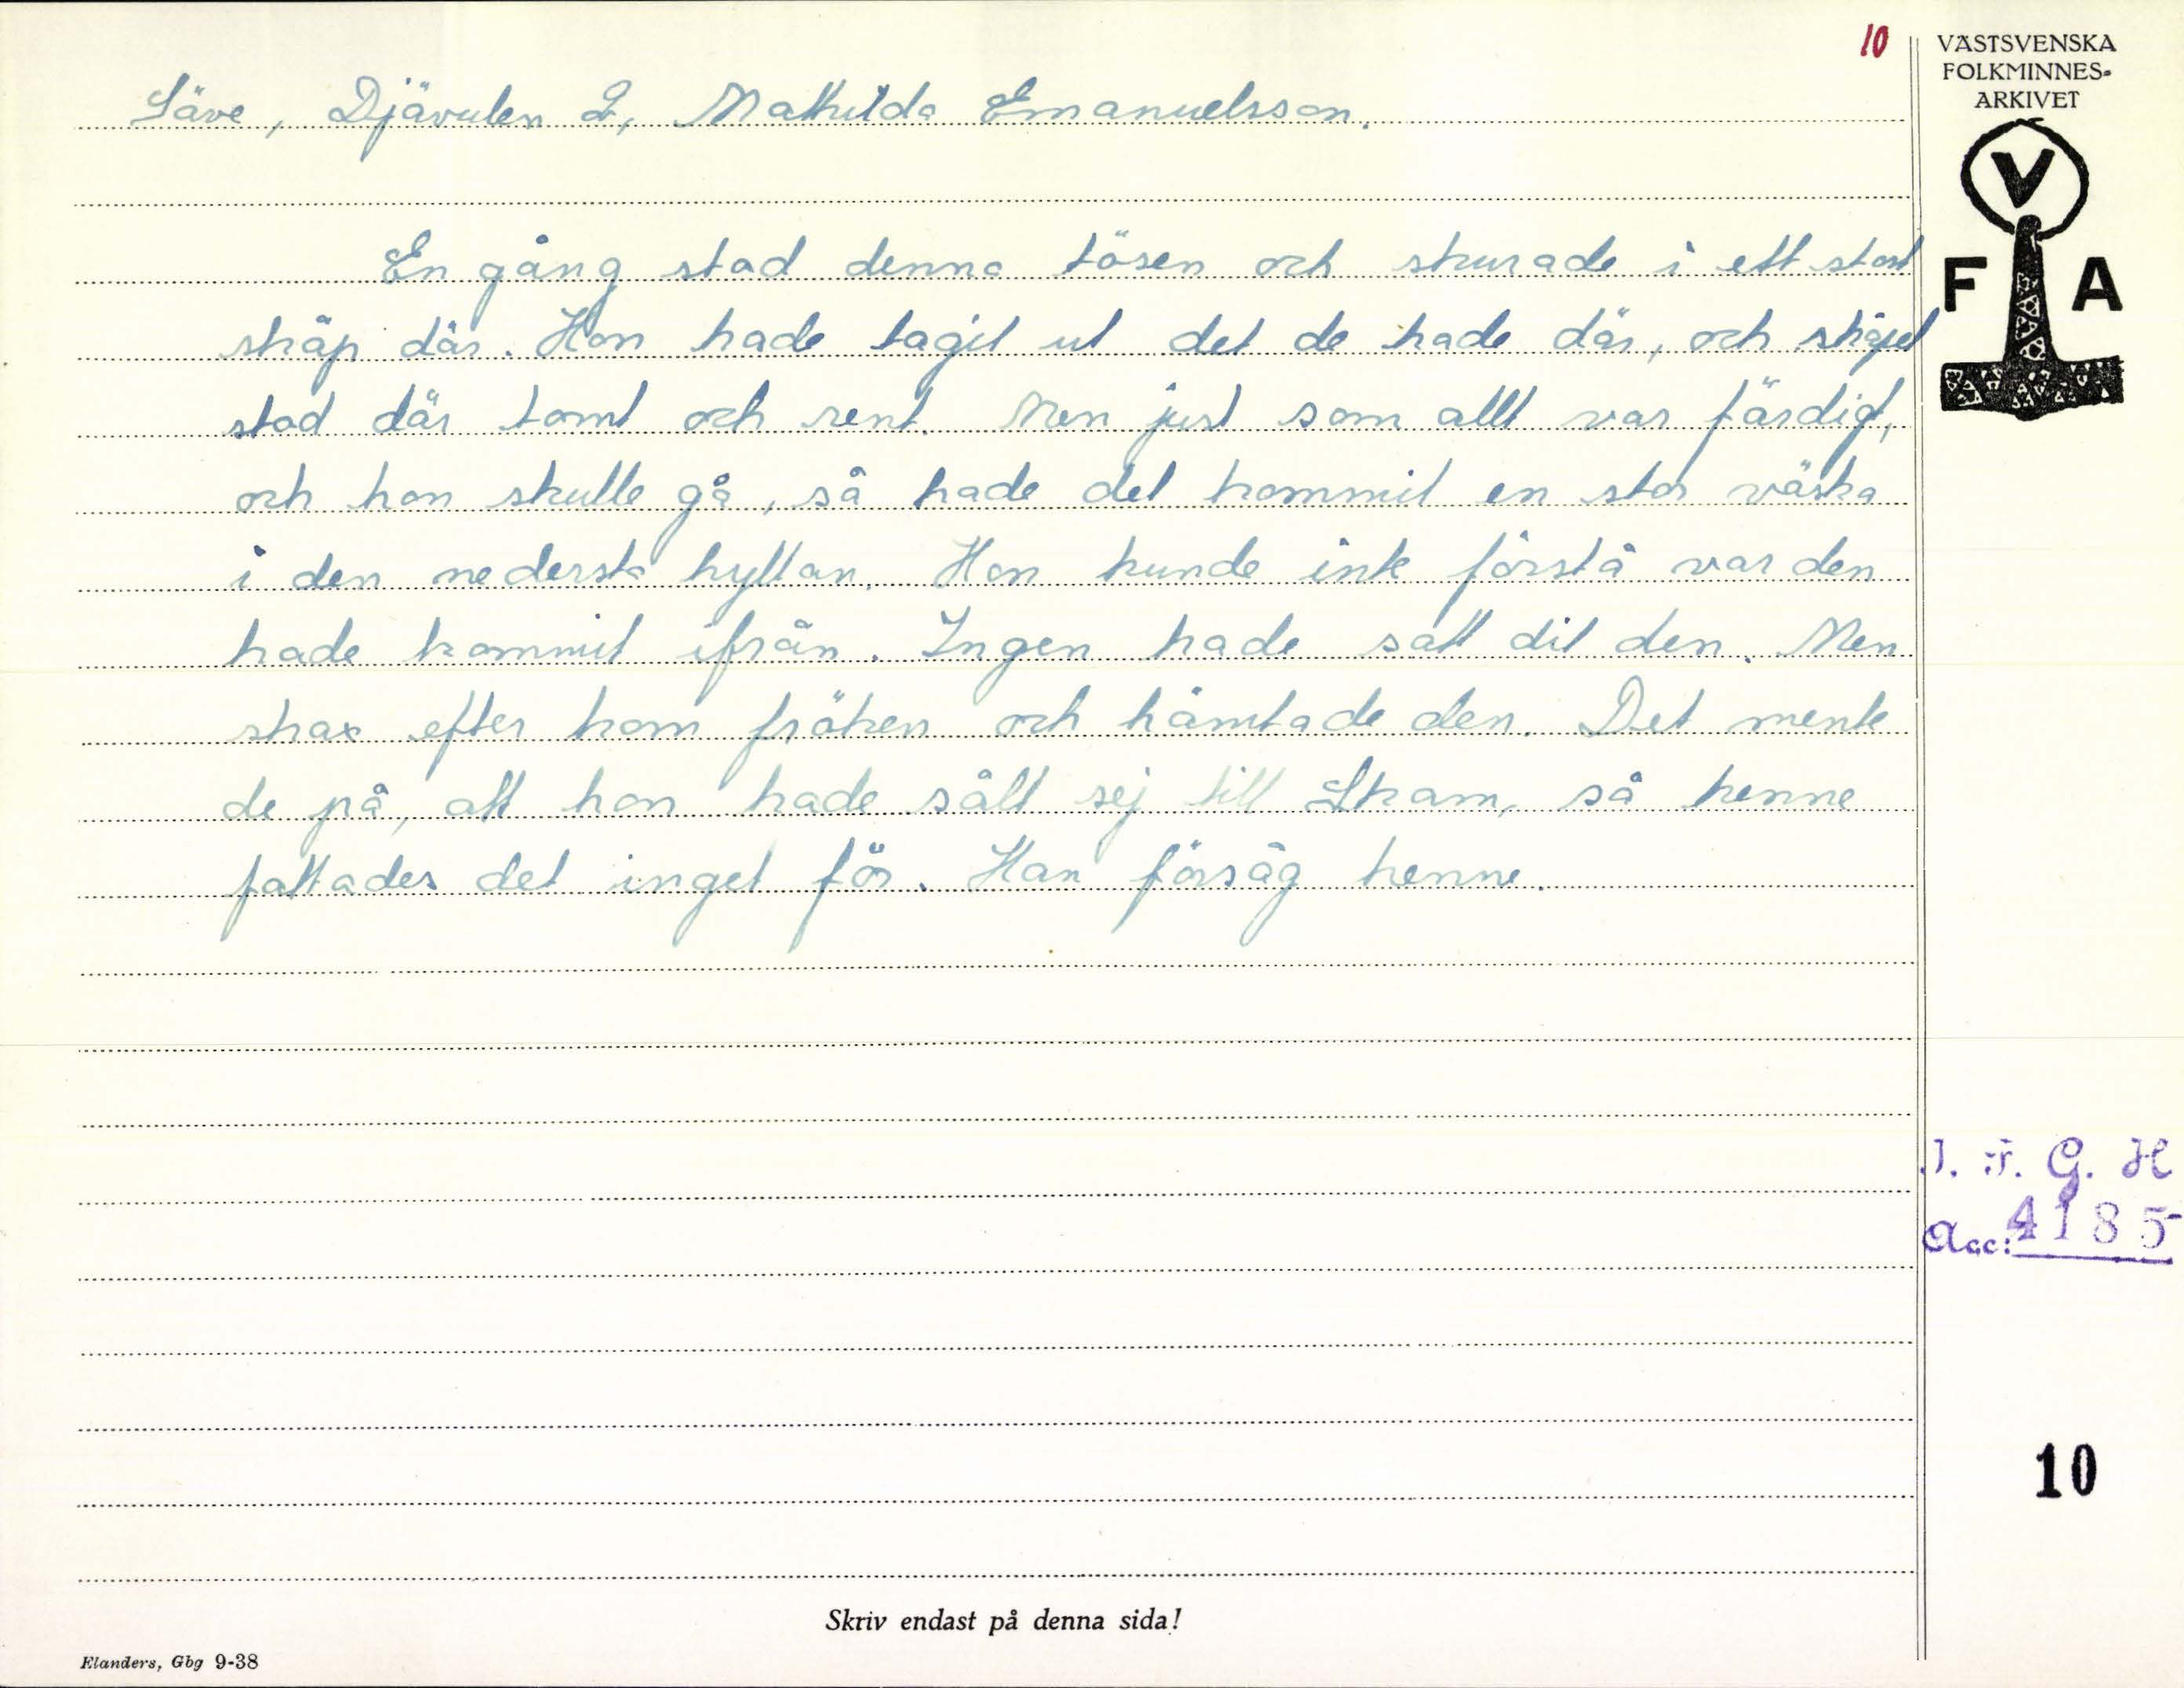 10
VÄSTSVENSKA
FOLKMINNES-
ARKIVET
V
F A
Säve, Djävulen 2, Mathilda Emanuelsson.
En gång stod denna tösen och skurade i ett stort
skåp där. Hon hade tagit ut det de hade där, och skåpet
stod där tomt och rent. Men just som allt var färdigt,
och hon skulle gå, så hade det kommit en stor väska
i den nedersta hyllan. Hon kunde inte förstå var den
hade kommit ifrån. Ingen hade satt dit den. Men
strax efter kom fröken och hämtade den. Det mente
de på, att hon hade sålt sej till Skam, så henne
fattades det inget för. Han försåg henne.
I. F. G. H
Acc: 4185
10
Skriv endast på denna sida!
Elanders, Gbg 9-38